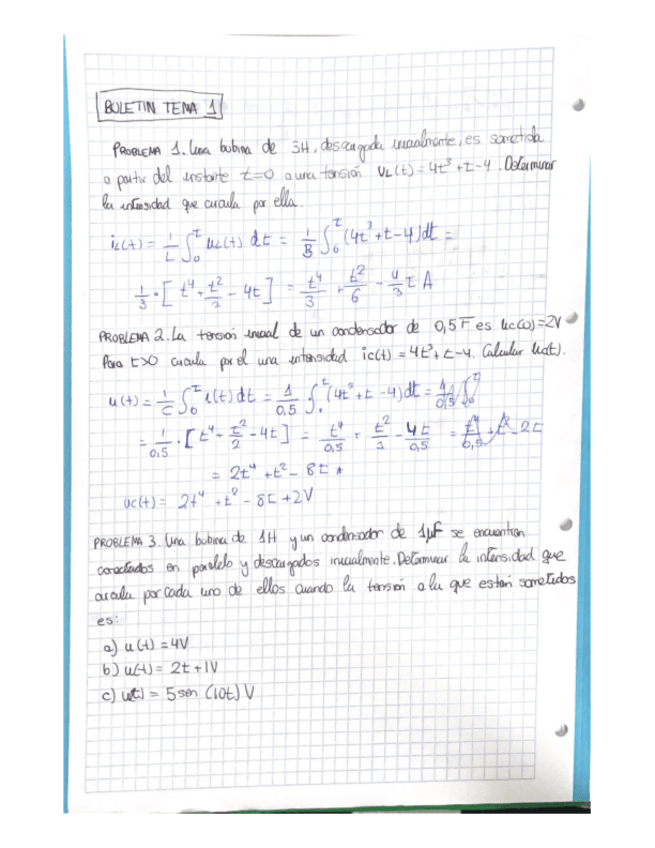 BOLETIN TEMA 1
PROBLEMA 1. Una bobina de 3H, descargada inicialmente, es sometida
a partir del instante t=0 a una tensión UL(t) = 4t³ + t - 4. Determinar
la intensidad que circula por ella.
iL(t) = 1/L ∫₀ᵗ uL(t) dt = 1/3 ∫₀ᵗ (4t³ + t - 4) dt =
1/3 · [t⁴ + t²/2 - 4t] = t⁴/3 + t²/6 - 4/3 t A
PROBLEMA 2. La tensión inicial de un condensador de 0,5 F es uc(0) = 2V
Para t>0 circula por el una intensidad ic(t) = 4t³ + t - 4. Calcular uc(t).
u(t) = 1/C ∫₀ᵗ i(t) dt = 1/0,5 · ∫₀ᵗ (4t³ + t - 4) dt =
= 1/0,5 · [t⁴ - t²/2 - 4t] = t⁴/0,5 + t²/1 - 4t/0,5 =
= 2t⁴ + t² - 8t
uc(t) = 2t⁴ + t² - 8t + 2V
PROBLEMA 3. Una bobina de 1H y un condensador de 1µF se encuentran
conectados en paralelo y descargados inicialmente. Determinar la intensidad que
circula por cada uno de ellos cuando la tensión a la que están sometidos
es:
a) u(t) = 4V
b) u(t) = 2t + 1V
c) u(t) = 5 sen (10t) V